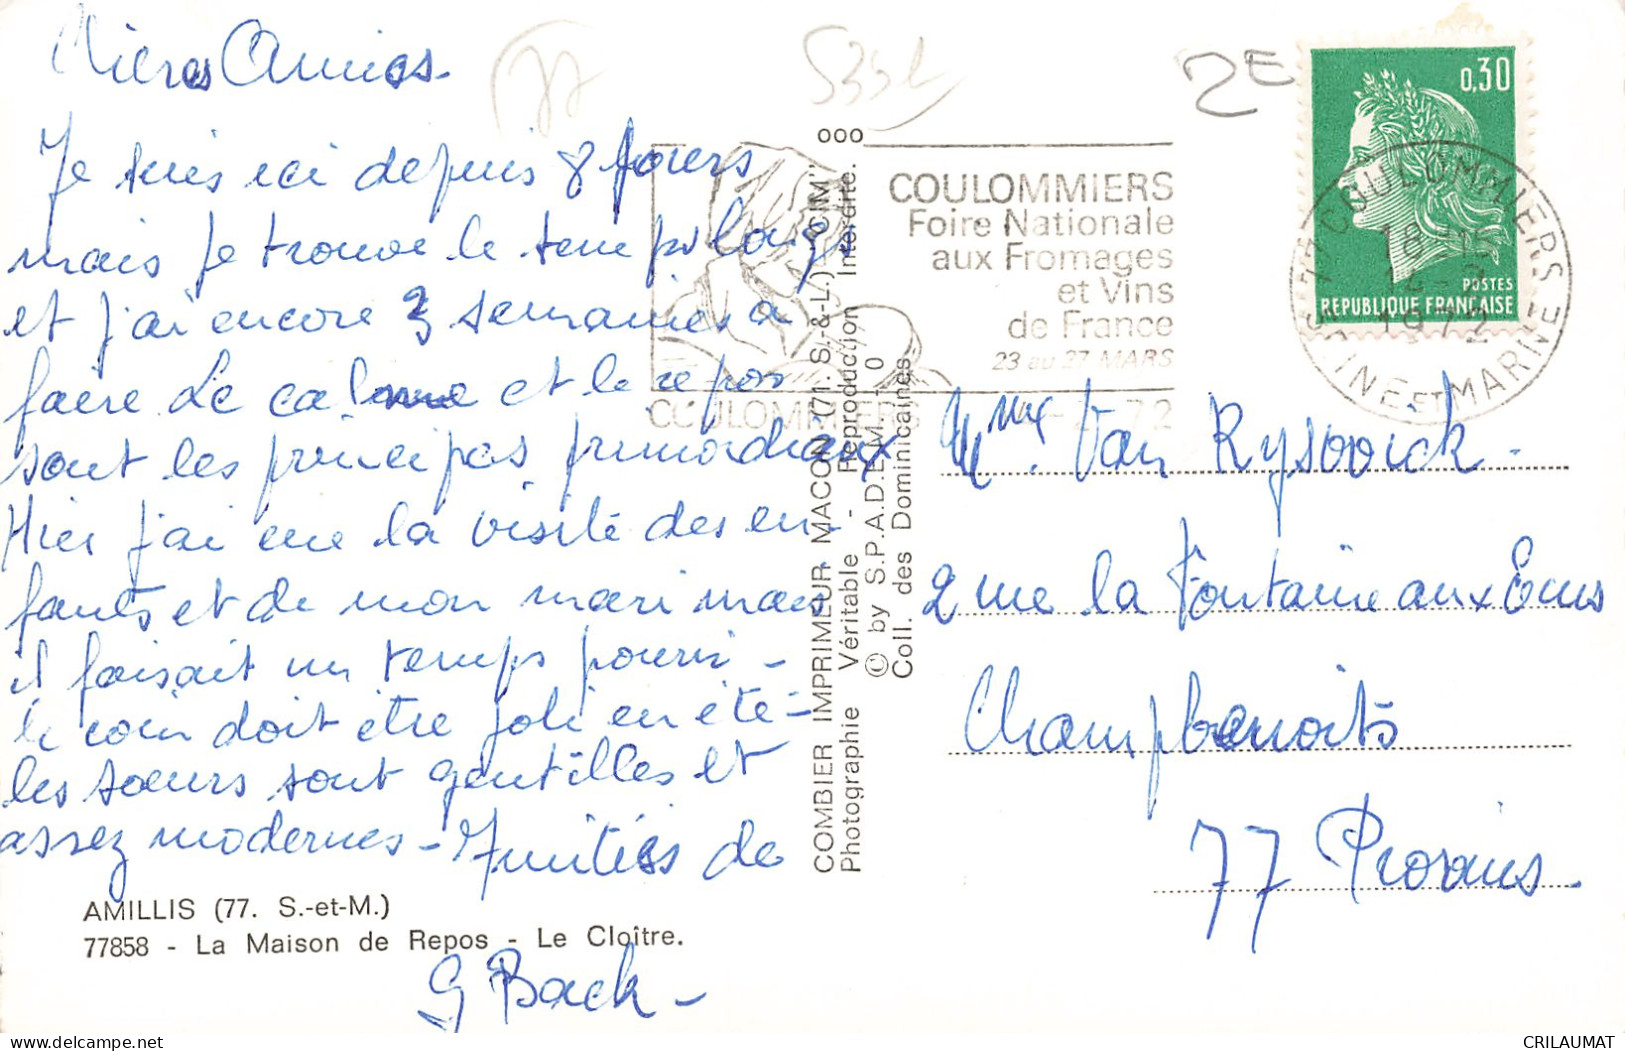 Chères Amies
Je suis ici depuis 8 jours
mais je trouve le temps long
et j'ai encore 3 semaines a
faire Le calme et le repos
sont les principes primordiaux
Hier j'ai eue la visite des en-
fants et de mon mari mais
il faisait un temps pourri -
le coin doit être joli en été -
les sœurs sont gentilles et
assez modernes - Amitiés de
G Back -
AMILLIS (77. S.-et-M.)
77858 - La Maison de Repos - Le Cloître.
77
2E
ooo
COMBIER IMPRIMEUR MACON (71. S.-&-L.) "CIM"
Photographie Véritable - Reproduction Interdite.
© by S.P.A.D.E.M.
Coll. des Dominicaines.
COULOMMIERS
Foire Nationale
aux Fromages
et Vins
de France
23 au 27 MARS
COULOMMIERS
0,30
POSTES
REPUBLIQUE FRANÇAISE
77 COULOMMIERS
18 H 15
1972
SEINE ET MARNE
Mme Van Rysovick
2 rue la Fontaine aux
Champbenoits
77 Provins
delcampe.net
CRILAUMAT